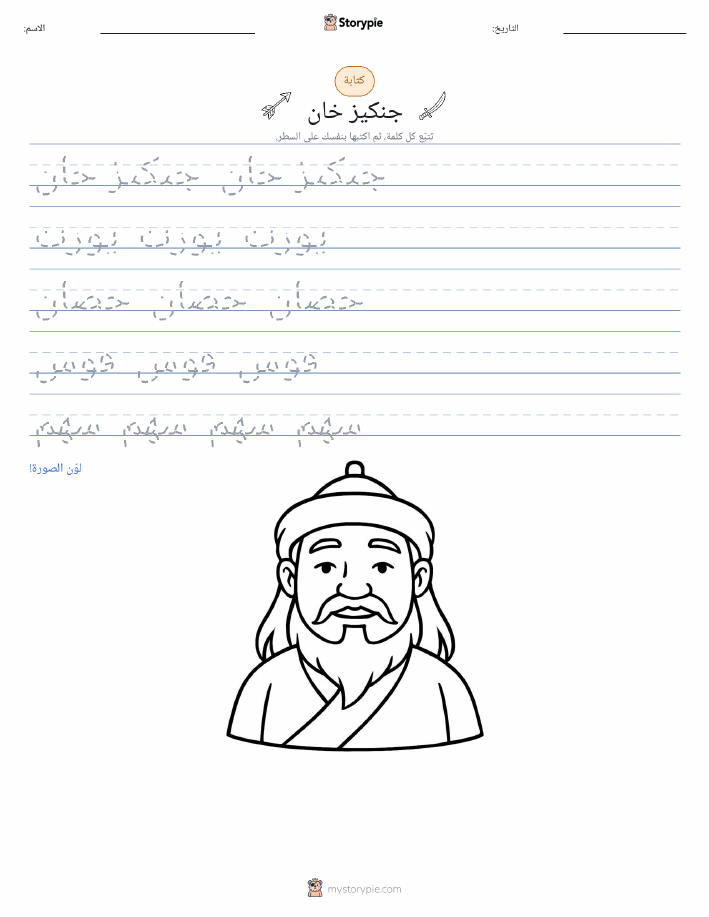 Storypie
الاسم:
التاريخ:
كتابة
جنكيز خان
تتبّع كل كلمة، ثم اكتبها بنفسك على السطر.
جنكيز خان جنكيز خان
يورت يورت يورت
حصان حصان حصان
قوس قوس قوس
سهم سهم سهم سهم
لوّن الصورة!
mystorypie.com